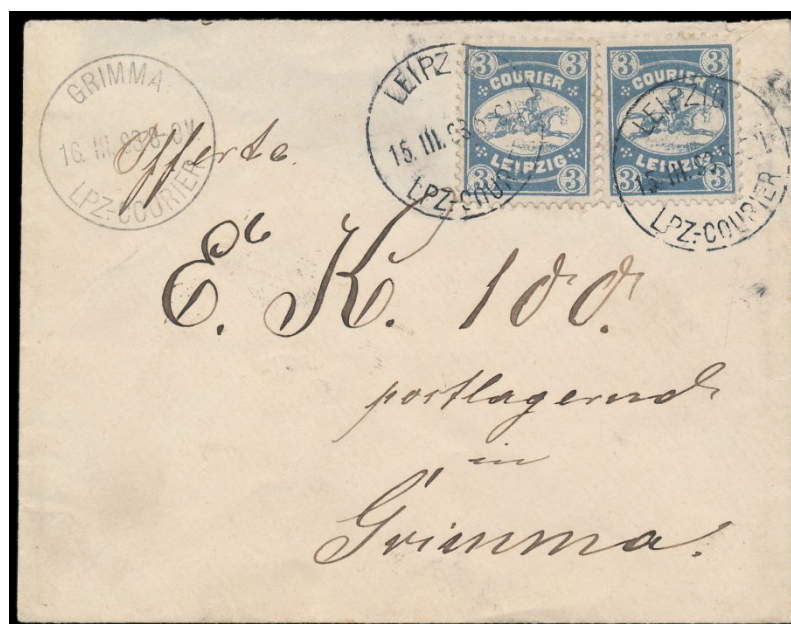 GRIMMA
16. III. 93 8-9V
LPZ.-COURIER
LEIPZ
15. III. 93
LPZ-COUR
3 3
COURIER
LEIPZIG
3 3
3 3
COURIER
LEIPZIG
3 3
LEIPZIG
15. III. 93
LPZ.-COURIER
Offerte.
E. K. 100.
postlagernd
in
Grimma.